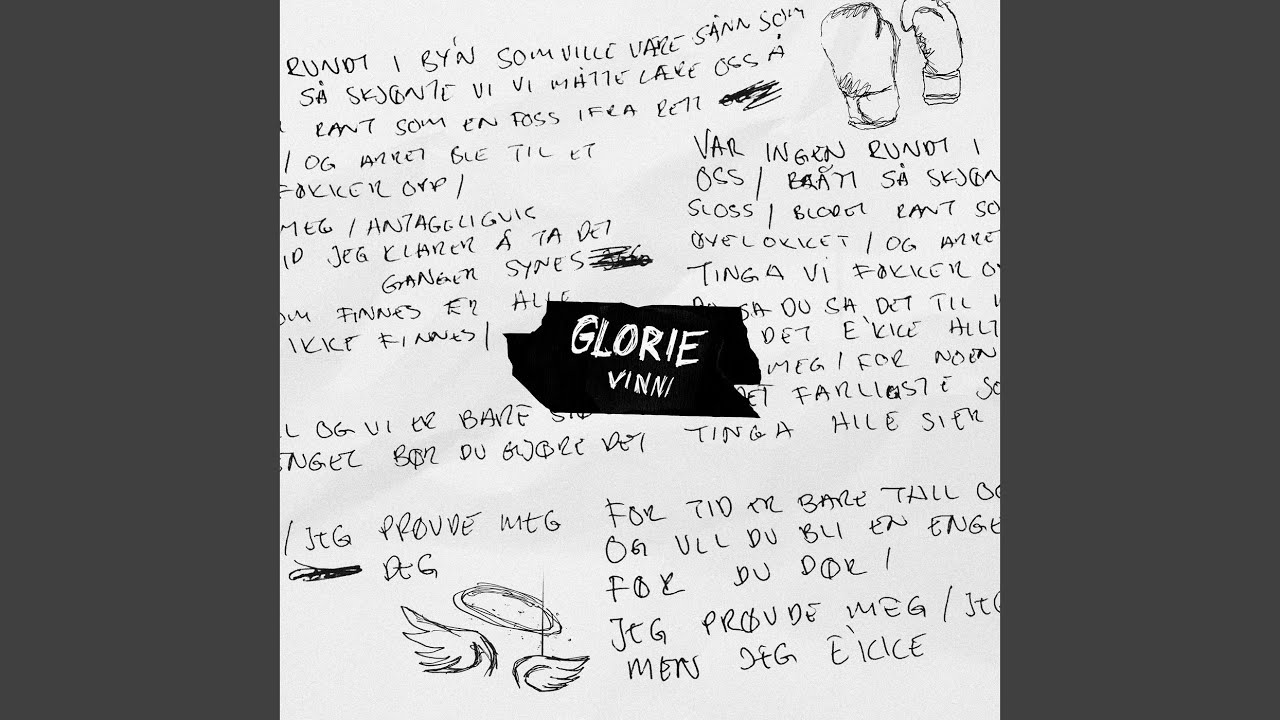 RUNDT I BY'N SOM VILLE VÆRE SÅNN SOM
SÅ SKJØNTE VI VI MÅTTE LÆRE OSS Å
RANT SOM EN FOSS IFRA RETT
/ OG ARRET BLE TIL ET
FØKKER OPP /
MEG / ANTAGELIGVIS
ID JEG KLARER Å TA DET
GANGER SYNES
OM FINNES ER ALLE
IKKE FINNES /
L OG VI ER BARE
ENGEL BØR DU GJØRE DET
/ JEG PRØVDE MEG
DEG
VAR INGEN RUNDT I
OSS / BRÅTT SÅ SKJØN
SLOSS / BLODET RANT SO
ØYELOKKET / OG ARRE
TINGA VI FØKKER OP
SA DU SA DET TIL
DET E'KKE ALLT
MEG / FOR NOEN
DET FARLIGSTE SO
TINGA ALLE SIER
GLORIE
VINNI
FOR TID ER BARE TALL OG
OG VIL DU BLI EN ENGE
FØR DU DØR /
JEG PRØVDE MEG / JEG
MEN JEG E'KKE